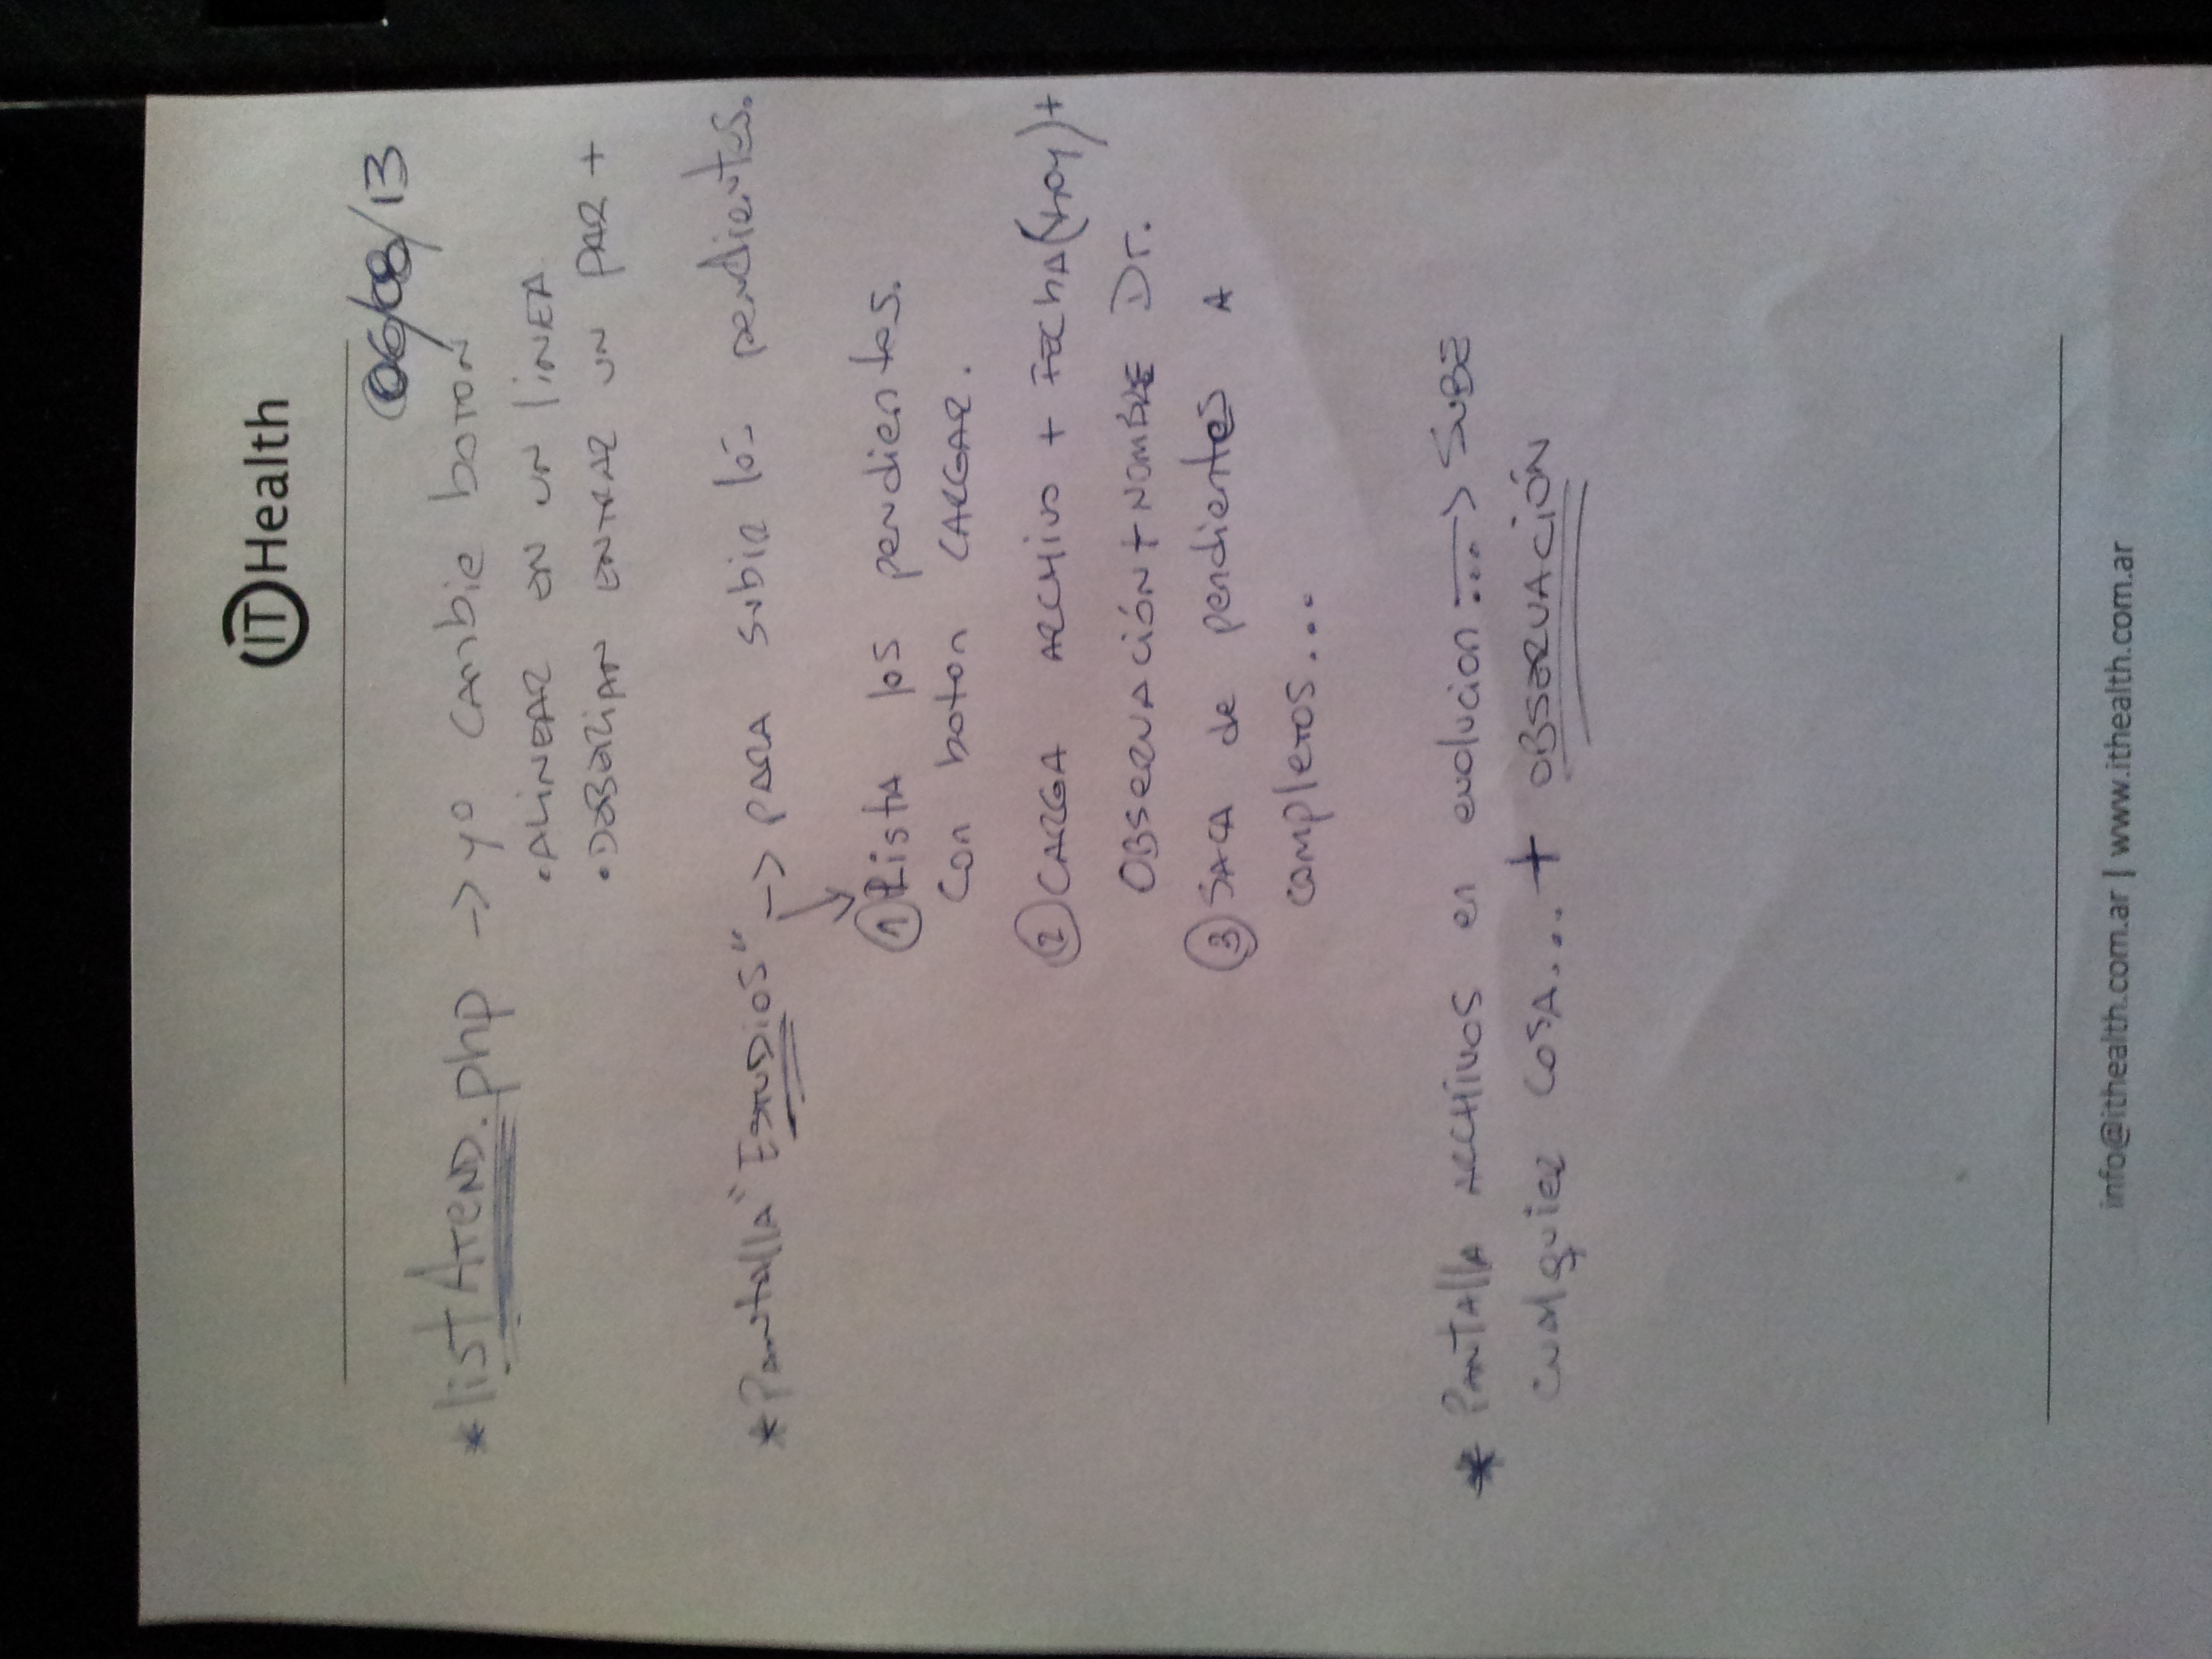 IT Health
06/08/13
* listAtend.php -> yo cambie botón
• ALINEAR en un linea
• DEBERIAN ENTRAR UN PAR +
* Pantalla "Estudios" -> para subir los pendientes.
① Lista los pendientes.
con boton CARGAR.
② CARGA ARCHIVO + Fecha (Hoy) +
OBSERVACIÓN + NOMBRE Dr.
③ SACA de pendientes A
completos...
* PANTALLA ARCHIVOS en evolucion....-> SUBE
cualquier cosa.... + OBSERVACIÓN
info@ithealth.com.ar | www.ithealth.com.ar